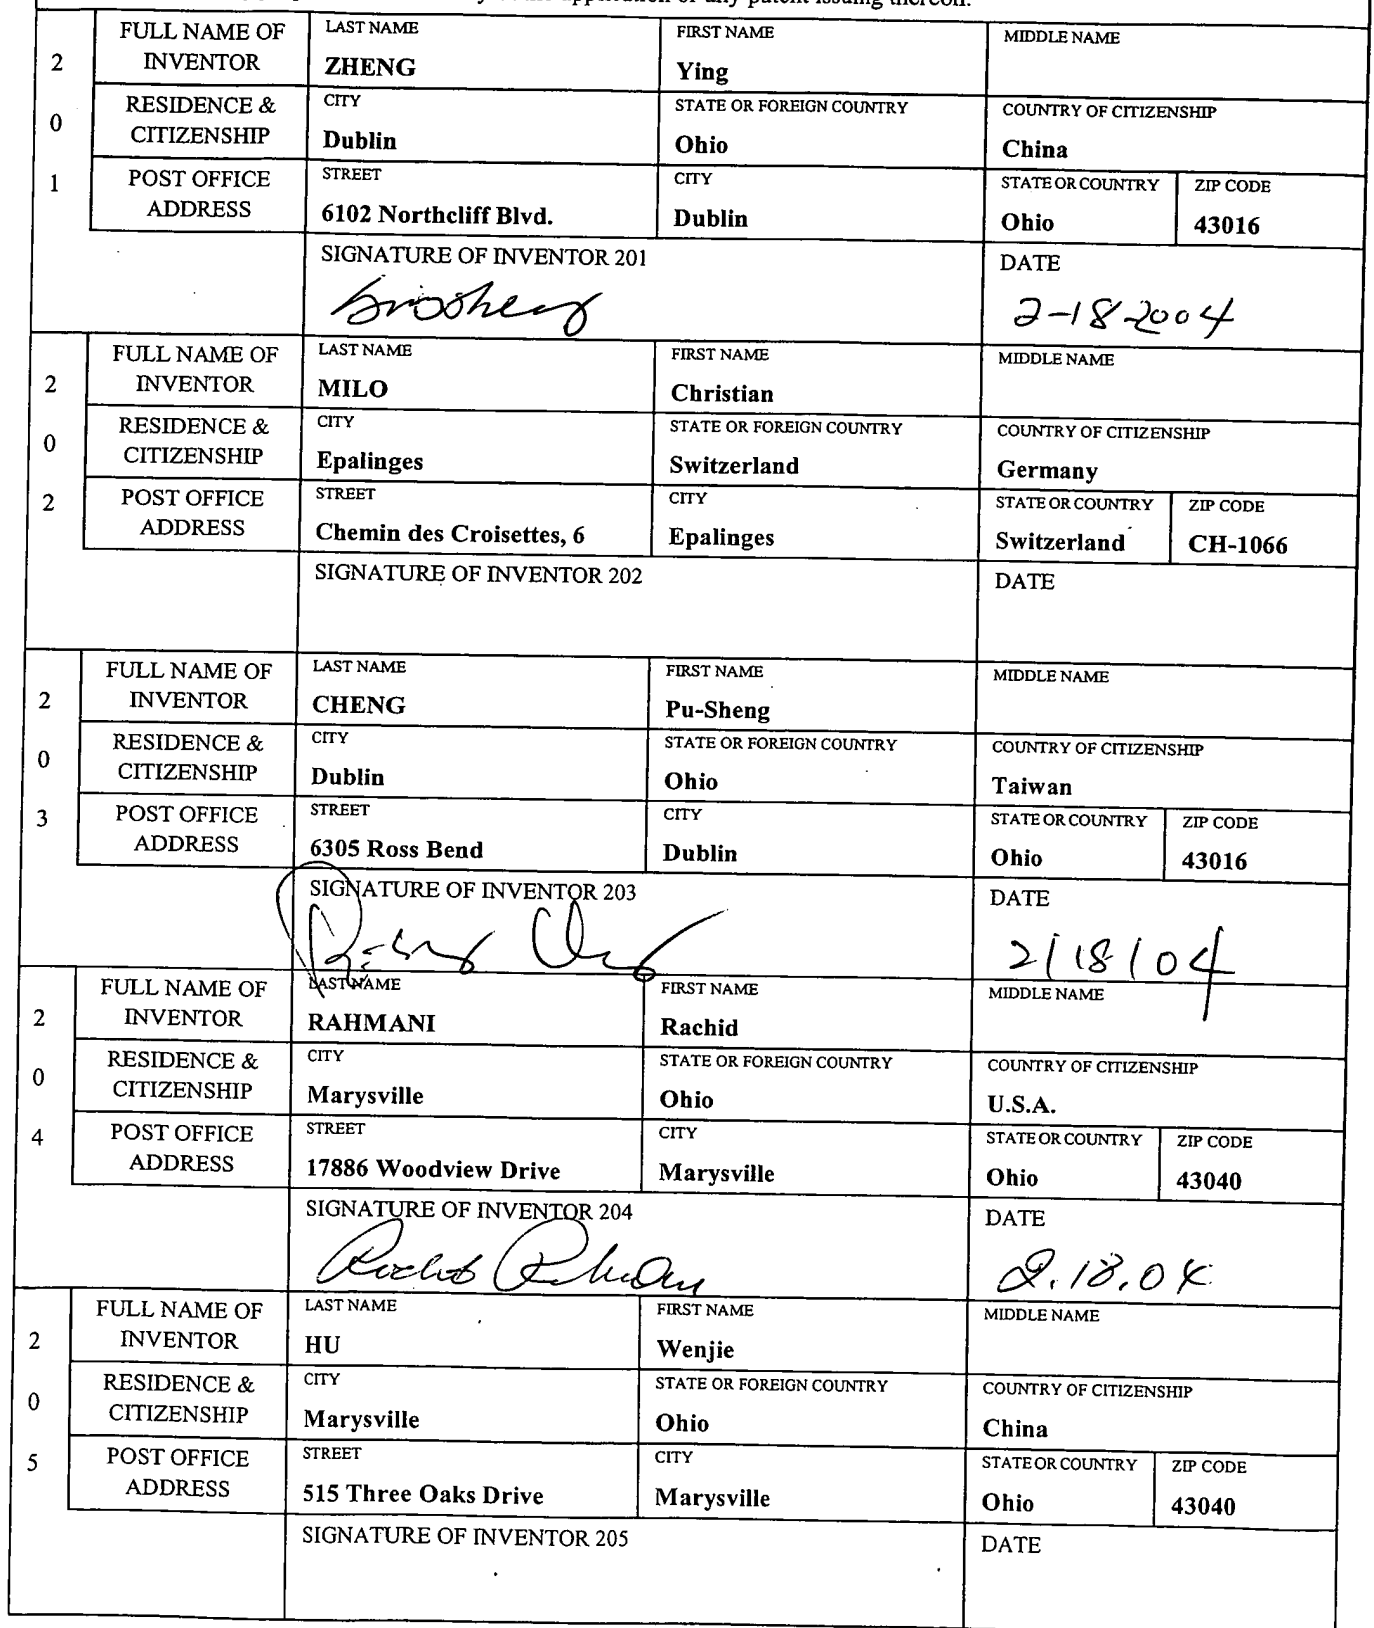 application or any patent issuing thereon.
2 0 1
FULL NAME OF INVENTOR
LAST NAME
ZHENG
FIRST NAME
Ying
MIDDLE NAME
RESIDENCE & CITIZENSHIP
CITY
Dublin
STATE OR FOREIGN COUNTRY
Ohio
COUNTRY OF CITIZENSHIP
China
POST OFFICE ADDRESS
STREET
6102 Northcliff Blvd.
CITY
Dublin
STATE OR COUNTRY
Ohio
ZIP CODE
43016
SIGNATURE OF INVENTOR 201
DATE
2-18-2004
2 0 2
FULL NAME OF INVENTOR
LAST NAME
MILO
FIRST NAME
Christian
MIDDLE NAME
RESIDENCE & CITIZENSHIP
CITY
Epalinges
STATE OR FOREIGN COUNTRY
Switzerland
COUNTRY OF CITIZENSHIP
Germany
POST OFFICE ADDRESS
STREET
Chemin des Croisettes, 6
CITY
Epalinges
STATE OR COUNTRY
Switzerland
ZIP CODE
CH-1066
SIGNATURE OF INVENTOR 202
DATE
2 0 3
FULL NAME OF INVENTOR
LAST NAME
CHENG
FIRST NAME
Pu-Sheng
MIDDLE NAME
RESIDENCE & CITIZENSHIP
CITY
Dublin
STATE OR FOREIGN COUNTRY
Ohio
COUNTRY OF CITIZENSHIP
Taiwan
POST OFFICE ADDRESS
STREET
6305 Ross Bend
CITY
Dublin
STATE OR COUNTRY
Ohio
ZIP CODE
43016
SIGNATURE OF INVENTOR 203
DATE
2/18/04
2 0 4
FULL NAME OF INVENTOR
LAST NAME
RAHMANI
FIRST NAME
Rachid
MIDDLE NAME
RESIDENCE & CITIZENSHIP
CITY
Marysville
STATE OR FOREIGN COUNTRY
Ohio
COUNTRY OF CITIZENSHIP
U.S.A.
POST OFFICE ADDRESS
STREET
17886 Woodview Drive
CITY
Marysville
STATE OR COUNTRY
Ohio
ZIP CODE
43040
SIGNATURE OF INVENTOR 204
DATE
2.18.04
2 0 5
FULL NAME OF INVENTOR
LAST NAME
HU
FIRST NAME
Wenjie
MIDDLE NAME
RESIDENCE & CITIZENSHIP
CITY
Marysville
STATE OR FOREIGN COUNTRY
Ohio
COUNTRY OF CITIZENSHIP
China
POST OFFICE ADDRESS
STREET
515 Three Oaks Drive
CITY
Marysville
STATE OR COUNTRY
Ohio
ZIP CODE
43040
SIGNATURE OF INVENTOR 205
DATE